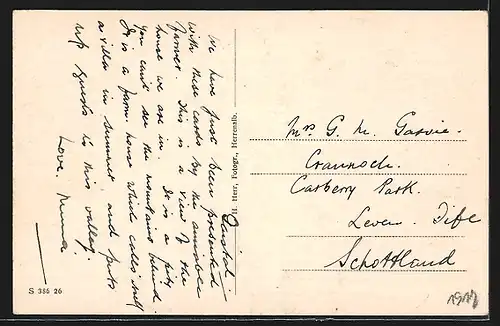 We have just been presented
with these cards by the amiable
farmer. This is a view of the
house we are in. It is a pity
you can't see the mountains behind.
It is a farm house which calls itself
a villa in summer, and puts
up guests to this valley.
Love,
H. Herr, Fotogr., Herrenalb.
Mrs G. M. Garvie.
Crannoch.
Carberry Park.
Leven. Fife
Schottland
S 386 26